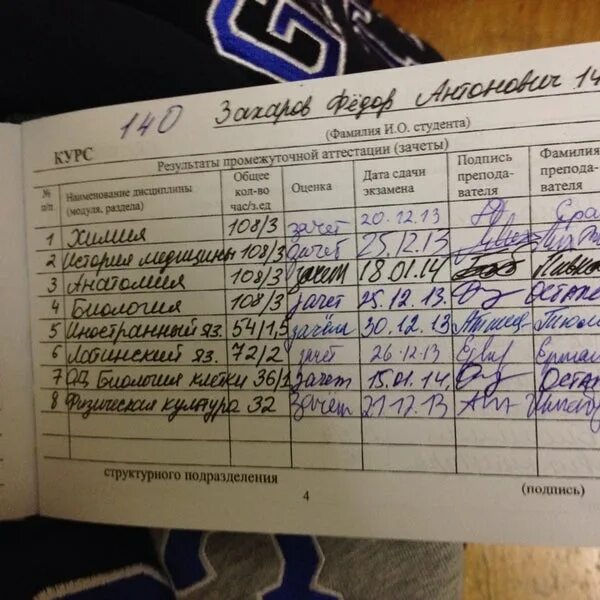 140 Захаров Фёдор Антонович 14
КУРС (Фамилия И.О. студента)
Результаты промежуточной аттестации (зачеты)
№ п/п Наименование дисциплины (модуля, раздела) Общее кол-во час/з.ед Оценка Дата сдачи экзамена Подпись препода-вателя Фамилия препода-вателя
1 Химия 108/3 зачет 20.12.13
2 История медицины 108/3 зачет 25.12.13
3 Анатомия 108/3 зачет 18.01.14
4 Биология 108/3 зачет 25.12.13. Остапе
5 Иностранный яз. 54/1,5 зачёт 30.12.13
6 Латинский яз. 72/2 зачёт 26.12.13 Ермак
7 ОД Биология клетки 36/1 зачет 15.01.14. Оста
8 Физическая культура 32 Зачёт 27.12.13
структурного подразделения (подпись)
4